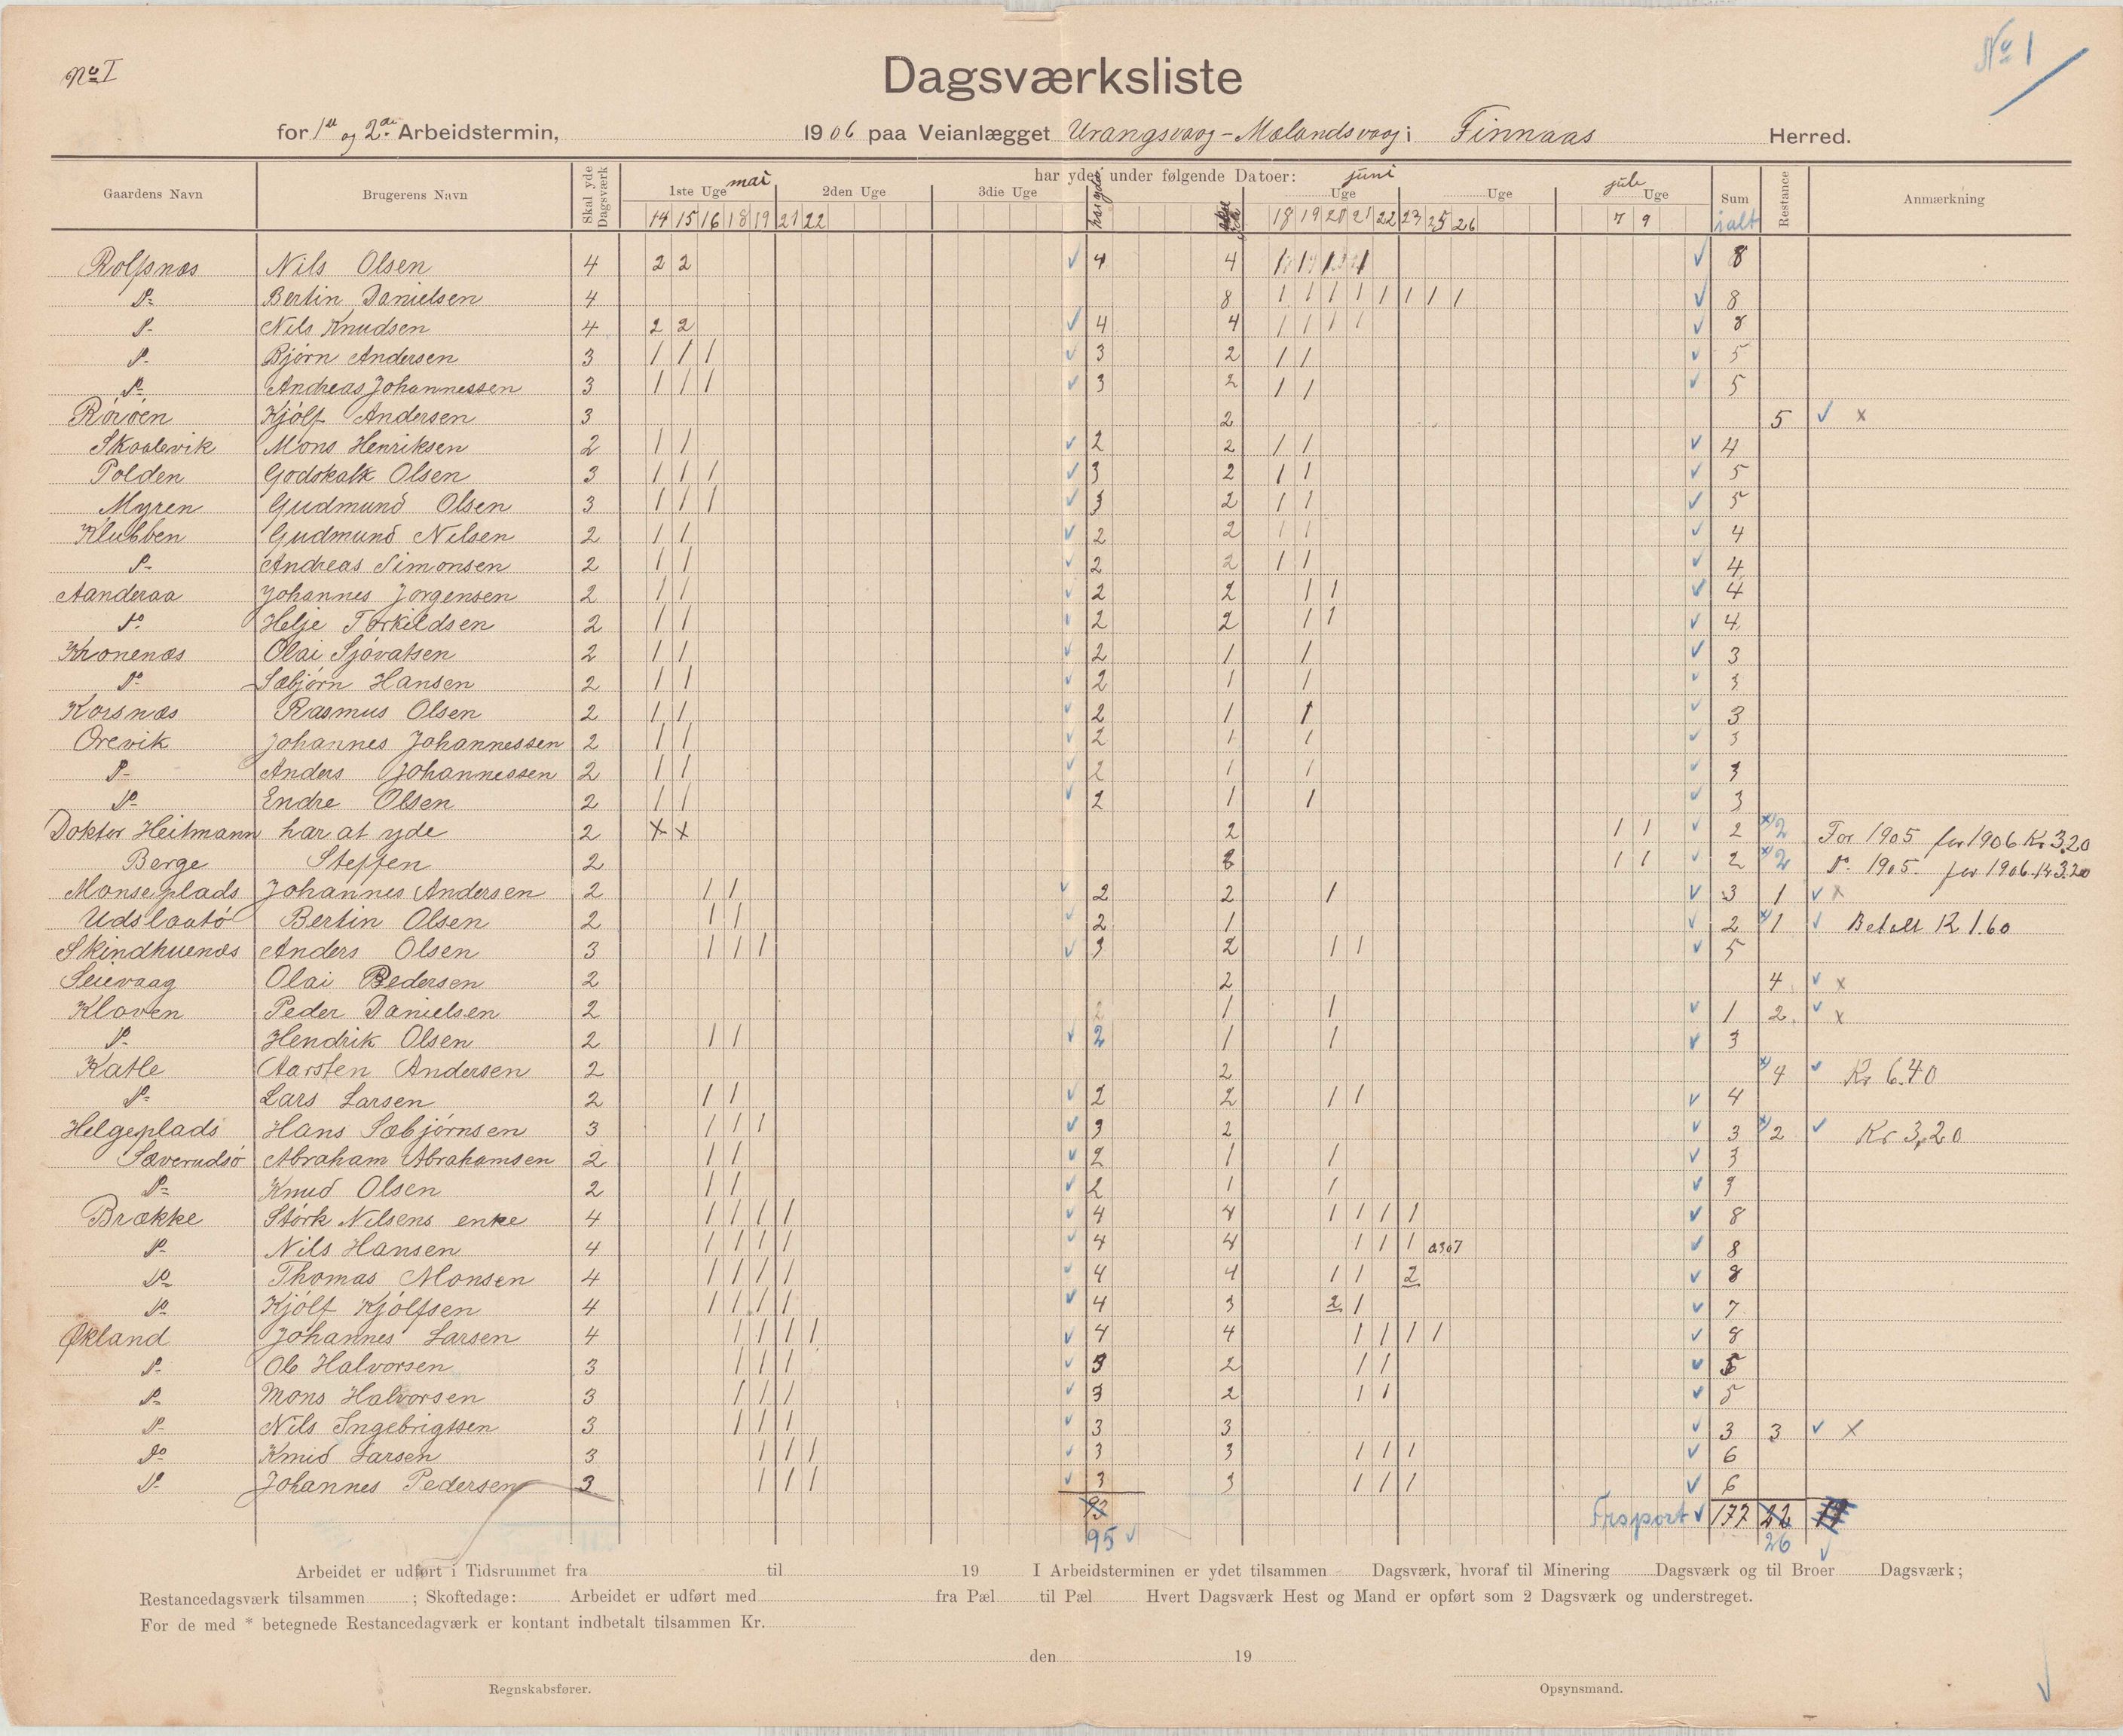 No I
No 1
Dagsværksliste
for 1ste og 2den Arbeidstermin, 1906 paa Veianlægget Urangsvaag - Mælandsvaag i Finnaas Herred.
Gaardens Navn Brugerens Navn Skal yde Dagsværk har ydet under følgende Datoer: Sum ialt Restance Anmærkning
1ste Uge mai 2den Uge 3die Uge har ydet juni Uge Uge jule Uge
14 15 16 18 19 21 22 18 19 20 21 22 23 25 26 7 9
Rolfsnæs Nils Olsen 4 2 2 4 4 1 1 1 1 8
Do Bertin Danielsen 4 8 1 1 1 1 1 1 1 1 8
Do Nils Knudsen 4 2 2 4 4 1 1 1 1 8
Do Bjørn Andersen 3 1 1 1 3 2 1 1 5
Do Andreas Johannessen 3 1 1 1 3 2 1 1 5
Röröen Kjölf Andersen 3 2 5 x
Skaalevik Mons Henriksen 2 1 1 2 2 1 1 4
Polden Godskalk Olsen 3 1 1 1 3 2 1 1 5
Myren Gudmund Olsen 3 1 1 1 3 2 1 1 5
Klubben Gudmund Nilsen 2 1 1 2 2 1 1 4
Do Andreas Simonsen 2 1 1 2 2 1 1 4
Aanderaa Johannes Jørgensen 2 1 1 2 2 1 1 4
Do Helje Torkildsen 2 1 1 2 2 1 1 4
Kronenæs Olai Sjövatsen 2 1 1 2 1 1 3
Do Sæbjørn Hansen 2 1 1 2 1 1 3
Korsnæs Rasmus Olsen 2 1 1 2 1 1 3
Orevik Johannes Johannessen 2 1 1 2 1 1 3
Do Anders Johannessen 2 1 1 2 1 1 3
Do Endre Olsen 2 1 1 2 1 1 3
Doktor Heitmann har at yde 2 x x 2 1 1 2 x) 2 For 1905 for 1906 Kr 3.20
Berge Steffen 2 2 1 1 2 x) 2 Do 1905. for 1906. Kr 3.20
Monseplads Johannes Andersen 2 1 1 2 2 1 3 1 x
Udslaatö Bertin Olsen 2 1 1 2 1 2 x) 1 Betalt K 1.60
Skindhuenæs Anders Olsen 3 1 1 1 3 2 1 1 5
Seievaag Olai Pedersen 2 2 4 x
Kloven Peder Danielsen 2 2 1 1 1 2. x
Do Hendrik Olsen 2 1 1 2 1 1 3
Katle Aarsten Andersen 2 2 x) 4 Kr 6.40
Do Lars Larsen 2 1 1 2 2 1 1 4
Helgeplads Hans Sæbjørnsen 3 1 1 1 3 2 3 x) 2 Kr 3,20
Sæverudsö Abraham Abrahamsen 2 1 1 2 1 1 3
Do Knud Olsen 2 1 1 2 1 1 3
Brække Störk Nilsens enke 4 1 1 1 1 4 4 1 1 1 1 8
Do Nils Hansen 4 1 1 1 1 4 4 1 1 1 8
Do Thomas Monsen 4 1 1 1 1 4 4 1 1 2 8
Do Kjölf Kjölfsen 4 1 1 1 1 4 3 2 1 7
Økland Johannes Larsen 4 1 1 1 1 4 4 1 1 1 1 8
Do Ole Halvorsen 3 1 1 1 3 2 1 1 5
Do Mons Halvorsen 3 1 1 1 3 2 1 1 5
Do Nils Ingebrigtsen 3 1 1 1 3 3 3 3 x
Do Knud Larsen 3 1 1 1 3 3 1 1 1 6
Do Johannes Pedersen 3 1 1 1 3 3 1 1 1 6
93 Trsport 177 22
95 26
Arbeidet er udført i Tidsrummet fra til 19 I Arbeidsterminen er ydet tilsammen Dagsværk, hvoraf til Minering Dagsværk og til Broer Dagsværk;
Restancedagsværk tilsammen ; Skoftedage: Arbeidet er udført med fra Pæl til Pæl Hvert Dagsværk Hest og Mand er opført som 2 Dagsværk og understreget.
For de med * betegnede Restancedagværk er kontant indbetalt tilsammen Kr.
den 19
Regnskabsfører. Opsynsmand.